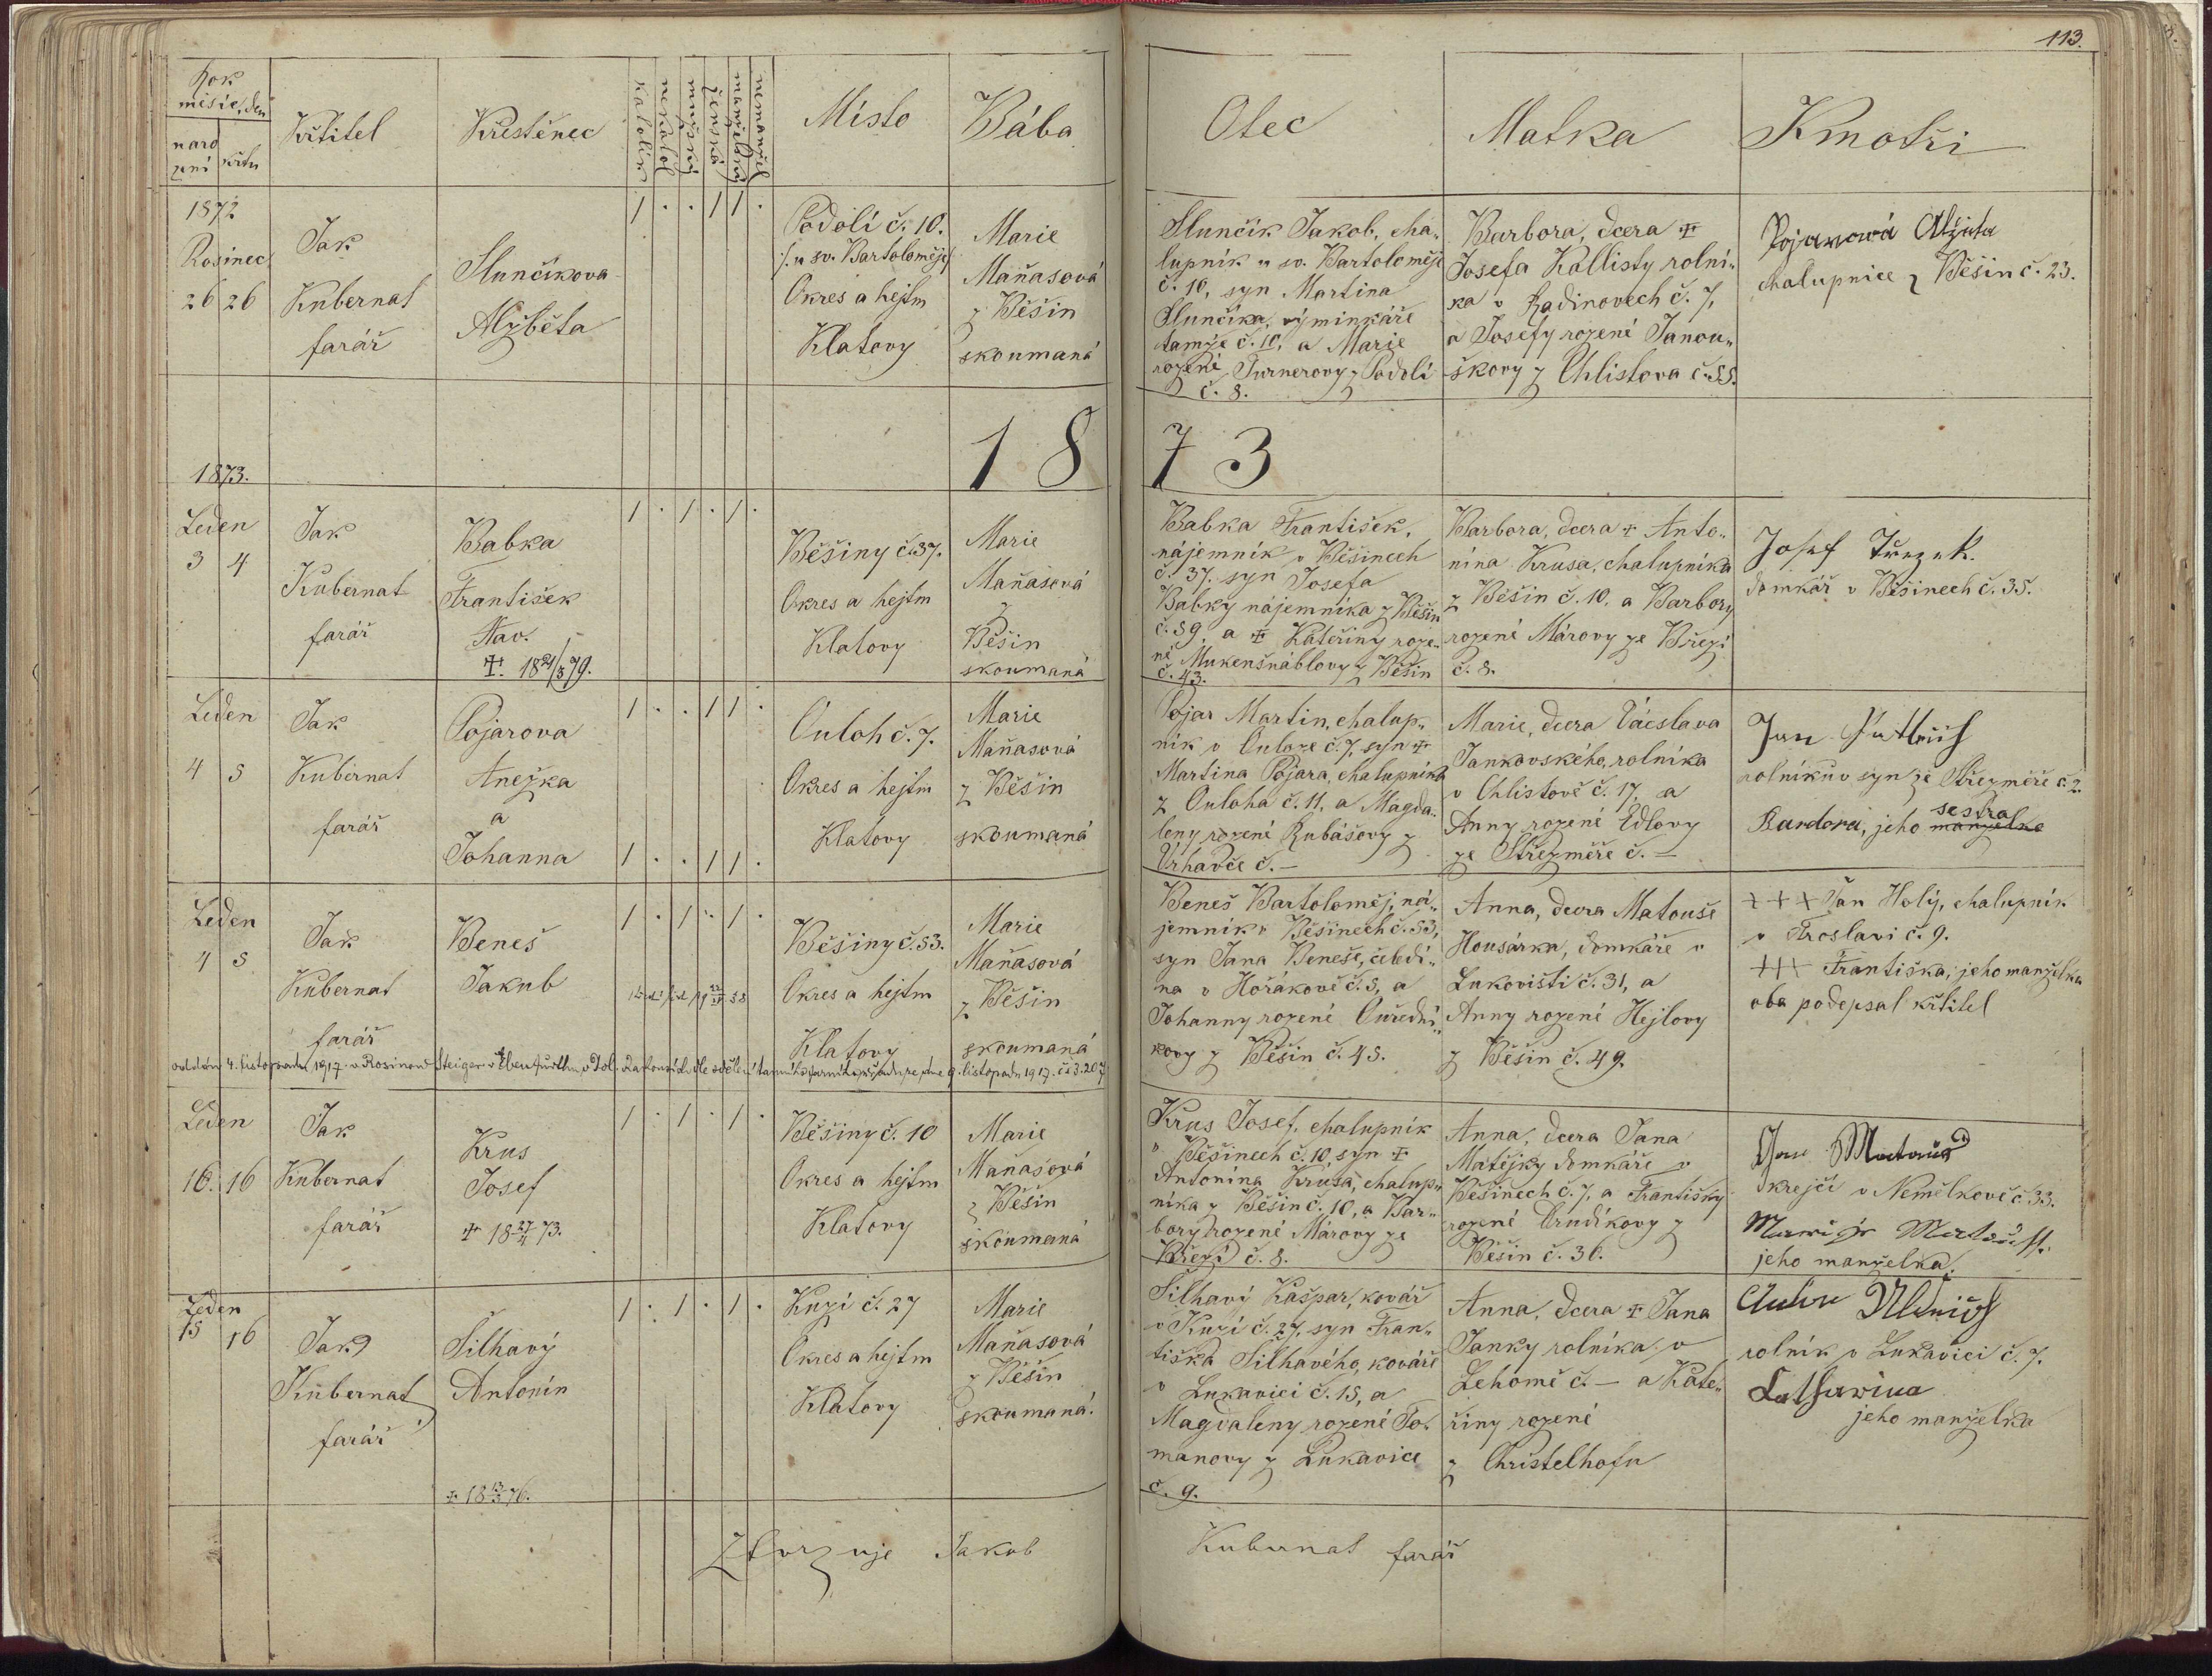 113.
Rok
měsíc, den
naro
zení
křtu
Křtitel
Křestěnec
katolík
nekatol
mužský
ženská
manželský
nemanžel
Místo
Bába
Otec
Matka
Kmotři
1872
Rosinec
26 26
Jak
Kubernat
farář
Slunčíkova
Alžběta
1 . . 1 1 .
Podolí č. 10.
/: u sv. Bartoloměje/
Okres a hejtm
Klatovy
Marie
Maňasová
z Běšin
skoumaná
Slunčík Jakob, cha„
lupník u sv. Bartoloměje
č. 10, syn Martina
Slunčíka, výminkáře
tamže č. 10, a Marie
rozené Turnerovy z Podolí
č. 8.
Barbora, dcera ✝
Josefa Kallisty rolní„
ka v Radinovech č. 7,
a Josefy rozené Janou„
škovy z Chlistova č. 55.
Pojarová Alžběta
chalupnice z Běšin č. 23.
1873.
18 73
Leden
3 4
Jak
Kubernat
farář
Babka
František
Nav.
✝. 18 21/5 79.
1 . 1 . 1 .
Běšiny č. 37.
Okres a hejtm
Klatovy
Marie
Maňasová
z
Běšin
skoumaná
Babka František,
nájemník v Běšinech
č. 37. syn Josefa
Babky nájemníka z Běšin
č. 39, a ✝ Kateřiny roze„
né Mukenšnáblovy z Běšin
č. 43.
Barbora, dcera ✝ Anto„
nína Krusa, chalupníka
z Běšin č. 10, a Barbory
rozené Márovy ze Březí
č. 8.
Josef
domkář v Běšinech č. 35.
Leden
4 5
Jak
Kubernat
farář
Pojarova
Anežka
a
Johanna
1 . . 1 1 .
1 . . 1 1 .
Ouloh č. 7.
Okres a hejtm
Klatovy
Marie
Maňasová
z Běšin
skoumaná
Pojar Martin, chalup„
ník v Ouloze č. 7, syn ✝
Martina Pojara, chalupníka
z Ouloha č. 11, a Magda„
leny rozené Rubášovy z
Vrhavče č. —
Marie, dcera Václava
Jankovského, rolníka
v Chlistově č. 17, a
Anny rozené Edlovy
ze Střezměře č. —
Jan
rolníkův syn ze Střezměře č. 2.
sestra
Barbora, jeho manželka
Leden
4 5
Jak
Kubernat
farář
Beneš
Jakub
1 . 1 . 1 .
Běšiny č. 53.
Okres a hejtm
Klatovy
Marie
Maňasová
z Běšin
skoumaná
Beneš Bartoloměj, ná„
jemník v Běšinech č. 53,
syn Jana Beneše, čeledí„
na v Hořákově č. 3, a
Johanny rozené Ouřední„
kovy z Běšin č. 45.
Anna, dcera Matouše
Housárka, domkáře v
Lukovišti č. 31, a
Anny rozené Hejlovy
z Běšin č. 49.
+++ Jan Holý, chalupník
v Troslavi č. 9.
+++ Františka, jeho manželka
oba podepsal křtitel
oddán 4. listopadu 1917 s Rosinou Steiger v v Dol. dle sdělení tamního farního úřadu ze dne 9. listopadu 1917. č. 3.207
Leden
16. 16
Jak
Kubernat
farář
Krus
Josef
✝ 18 27/4 73.
1 . 1 . 1 .
Běšiny č. 10
Okres a hejtm
Klatovy
Marie
Maňasová
z Běšin
skoumaná
Krus Josef, chalupník
v Běšinech č. 10, syn ✝
Antonína Krusa, chalup„
níka z Běšin č. 10, a Bar„
bory rozené Márovy ze
Březí č. 8.
Anna, dcera Jana
Matějky domkáře v
Běšinech č. 7, a Františky
rozené Crudíkovy z
Běšin č. 36.
Jan Matouš
krejčí v Nemělkově č. 33.
jeho manželka.
Leden
15 16
Jak
Kubernat
farář
Šilhavý
Antonín
✝ 18 13/3 76.
1 . 1 . 1 .
Kuzí č. 27
Okres a hejtm
Klatovy
Marie
Maňasová
z Běšin
skoumaná.
Šilhavý Kašpar, kovář
v Kuzí č. 27, syn Fran„
tiška Šilhavého, kováře
v Lukavici č. 15, a
Magdaleny rozené To„
manovy z Lukavice
č. 9.
Anna, dcera ✝ Jana
Janky rolníka v
Lehomě č. — a Kate„
řiny rozené
z Christelhofu
rolník v Lukavici č. 7.
Katharina
jeho manželka
Ztvrzuje Jakob
Kubernat farář